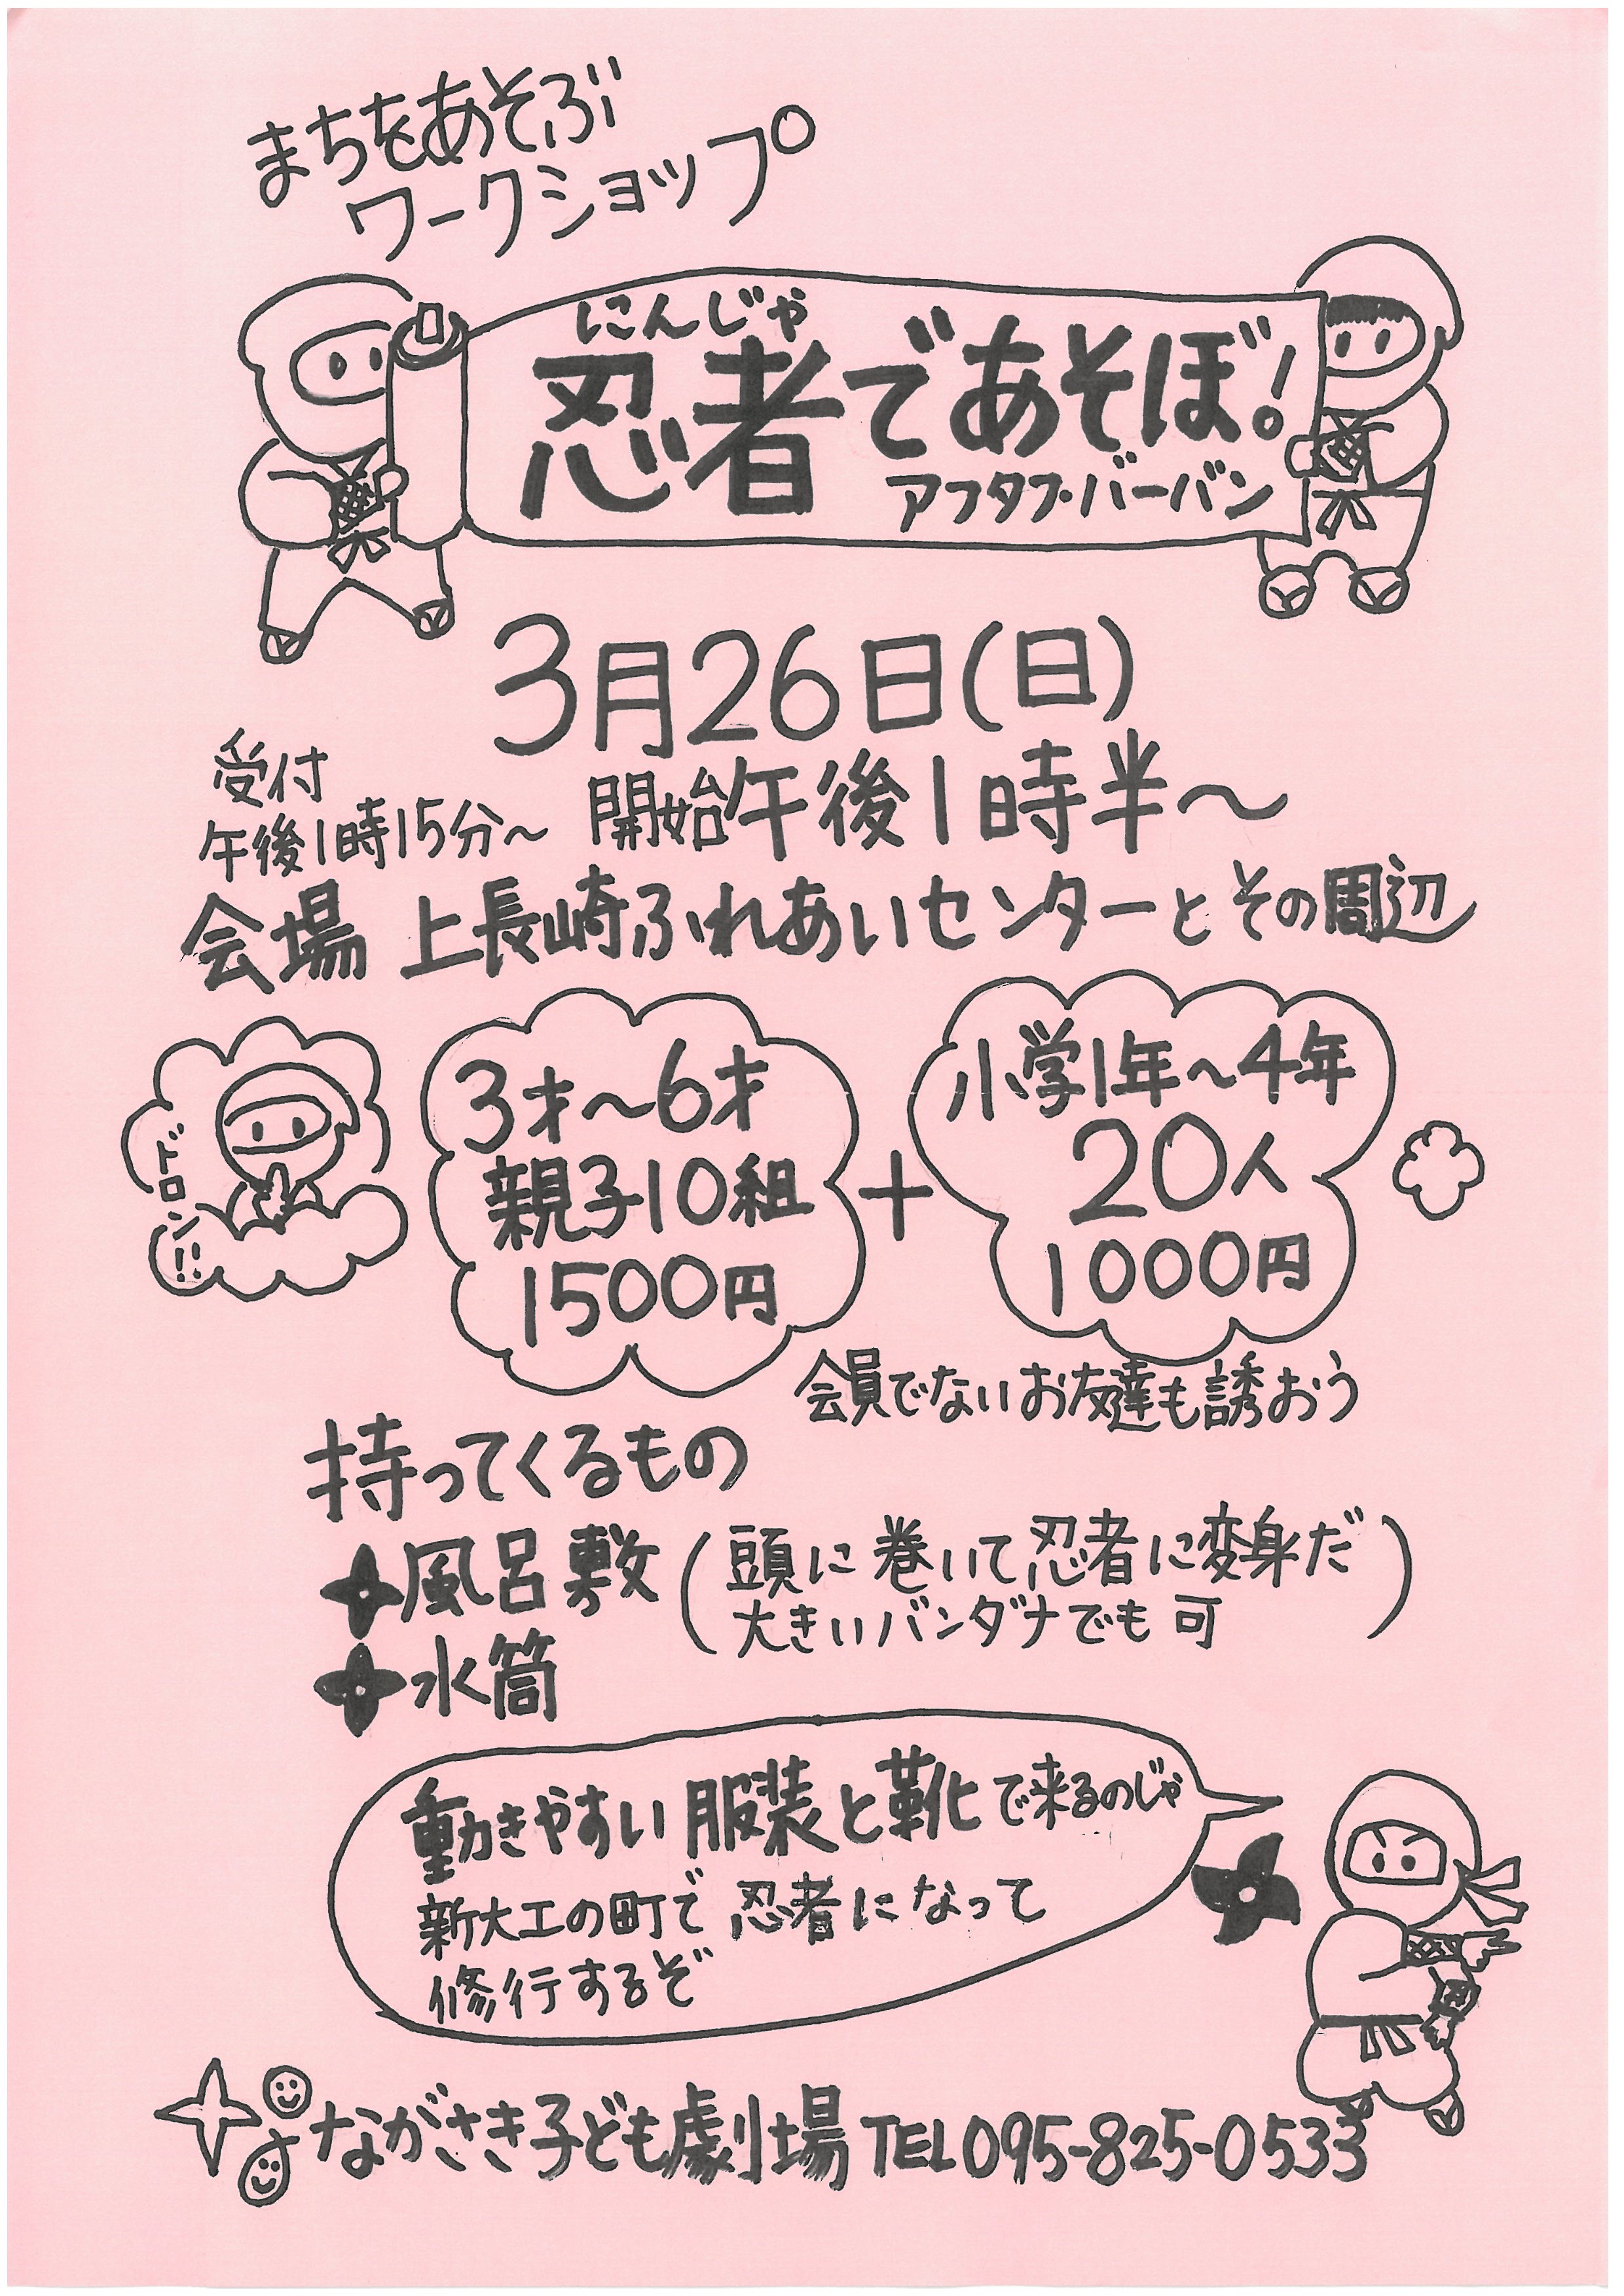 まちをあそぶ
ワークショップ
にんじゃ
忍者であそぼ!
アフタフ・バーバン
3月26日(日)
受付
午後1時15分～
開始午後1時半～
会場 上長崎ふれあいセンターとその周辺
ドロン!!
3才～6才
親子10組
1500円
+
小学1年～4年
20人
1000円
会員でないお友達も誘おう
持ってくるもの
風呂敷(頭に巻いて忍者に変身だ
大きいバンダナでも可)
水筒
動きやすい服装と靴で来るのじゃ
新大工の町で忍者になって
修行するぞ
ながさき子ども劇場 TEL095-825-0533